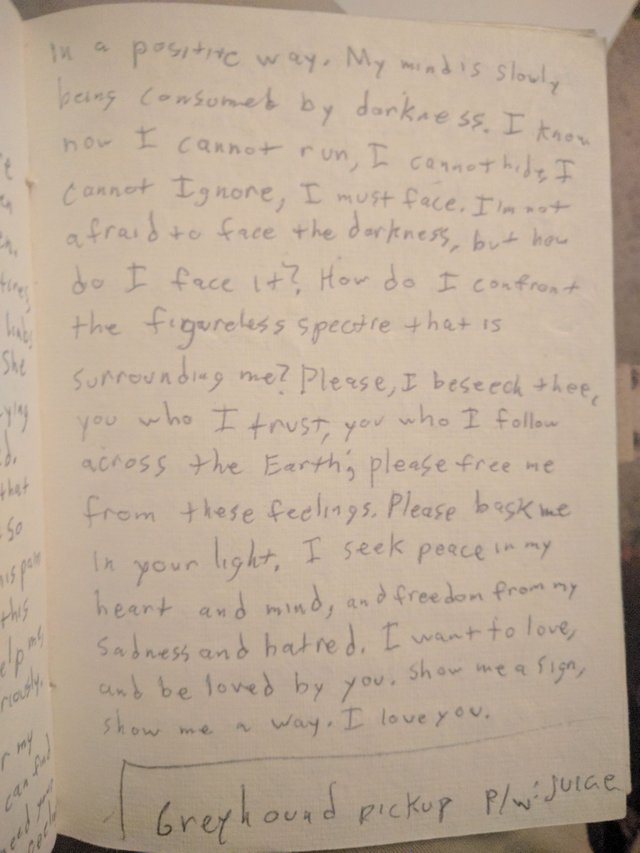 in a positive way. My mind is slowly
being consumed by darkness. I know
now I cannot run, I cannot hide, I
cannot Ignore, I must face. I'm not
afraid to face the darkness, but how
do I face it? How do I confront
the figureless spectre that is
surrounding me? Please, I beseech thee,
you who I trust, you who I follow
across the Earth; please free me
from these feelings. Please bask me
in your light. I seek peace in my
heart and mind, and freedom from my
sadness and hatred. I want to love,
and be loved by you. Show me a sign,
show me a way. I love you.
Greyhound pickup P/W: JUICE
She
that
so
his pain
this
me,
my
can find